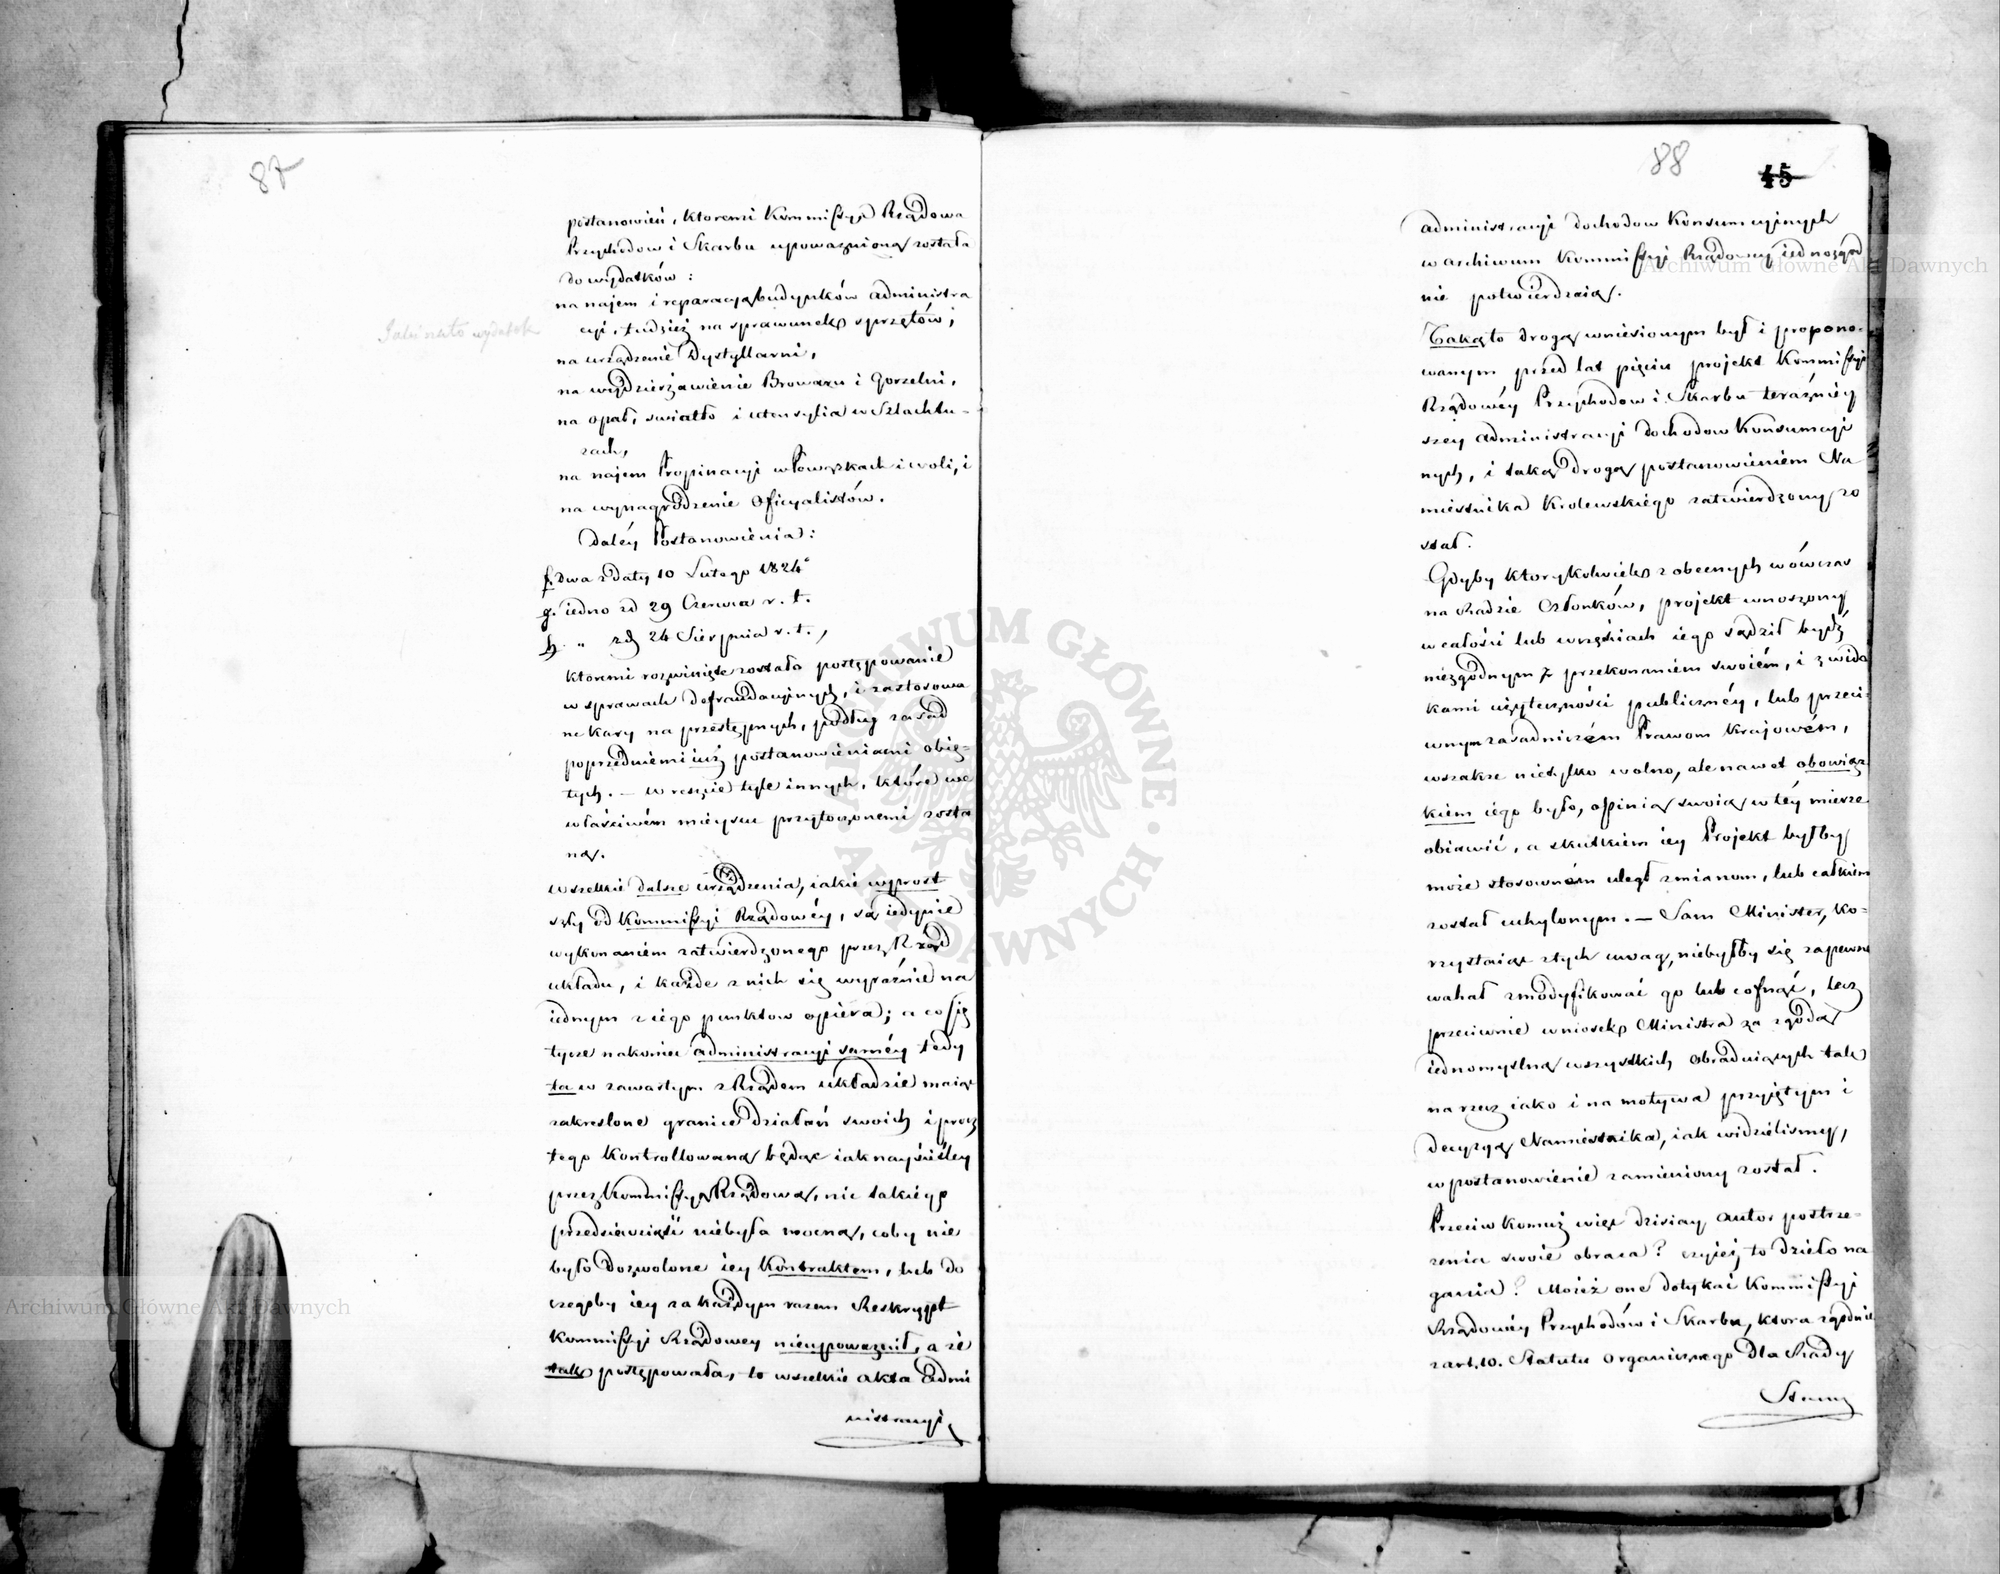 87
postanowień, któremi Kommissya Rządowa
Przychodow i Skarbu upoważnioną została
do wydatków:
na najem i reparacyą budynków Administra
cyi, tudzież na sprawunek sprzętów;
na urządzenie Dystyllarni,
na wydzierżawienie Browaru i Gorzelni,
na opał, swiatło i utensylia w Szlachtu-
zach,
na najem Propinacyi w Powązkach i woli, i
na wynagrodzenie Oficyalistów.
Daléy Postanowienia:
f. dwa z daty 10 Lutego 1824
g. iedno zd 29 Czerwca r. t.
h. " zd 24 Sierpnia r. t.,
ktoremi rozwinięte zostało postępowanie
w sprawach defraudacyjnych, i zastosowa
ne kary na przestępnych, podług zasad
poprzedniemi iuż postanowieniami obię-
tych. — w reszcie tyle innych, które we
właściwém mieyscu przytoczonemi zosta
ną.
wszelkie dalsze urządzenia, iakie wyprost
szły od Kommissyi Rządowéy, są iedynie
wykonaniem zatwierdzonego przez Rząd
układu, i każde z nich się wyraźnie na
iednym z iego punktow opiera; a co się
tycze nakoniec administracyi saméy tedy
ta w zawartym z Rządem układzie maiąc
zakreslone granice działań swoich i procz
tego kontrollowaną będąc iak nayściśley
przez Kommissyą Rządową, nic takiego
przedsiewziąść niebyła mocną, coby nie
było dozwolone iey Kontraktem, lub do
czegoby iey za każdym razem Reskrypt
Kommissyi Rządowey nieupoważnił, a że
tak postępowała, to wszelkie akta Admi
nistracyi
88
45
administracyi dochodow Konsumcyjnych
w archiwum Kommissyi Rządowey iednozgod
nie potwierdzaią.
Takąto drogą wniesionym był i propono-
wanym przed lat pięciu projekt Kommissyi
Rządowéy Przychodow i Skarbu teraźniey
szey administracyi dochodow Konsumcyi
nych, i taką drogą postanowieniem Na
miestnika Krolewskiégo zatwierdzony zo
stał.
Gdyby ktorykolwiek z obecnych wówczas
na Radzie Członków, projekt wnoszony
w całości lub w częściach iego sądził bydź
niezgodnym z przekonaniem swoiém, i z wido
kami użyteczności publicznéy, lub przeci-
wnym zasadniczém Prawom Krajowém,
wszakże nietylko wolno, ale nawet obowiąz
kiem iégo było, opinią swoią w téy mierze
obiawić, a skutkiem iey Projekt byłby
może stosowném uległ zmianom, lub całkiem
został uchylonym. — Sam Minister, ko-
rzystaiąc z tych uwag, niebyłby się zapewne
wahał zmodyfikować go lub cofnąć, lecz
przeciwnie wniosek Ministra za zgodą
iednomyslną wszystkich obraduiących tak
na rzecz iako i na motywa przyjętym i
decyzyą Namiestnika, iak widzielismy,
w postanowienie zamieniony został.
Przeciw komuż więc dzisiay autor postrze-
żenia swoie obraca? czyieiż to dzieło na
gania? Możeż one dotykać Kommissyi
Rządowéy Przychodów i Skarbu, ktora zgodnie
z art. 10. Statutu Organicznego dla Rady
Stanu